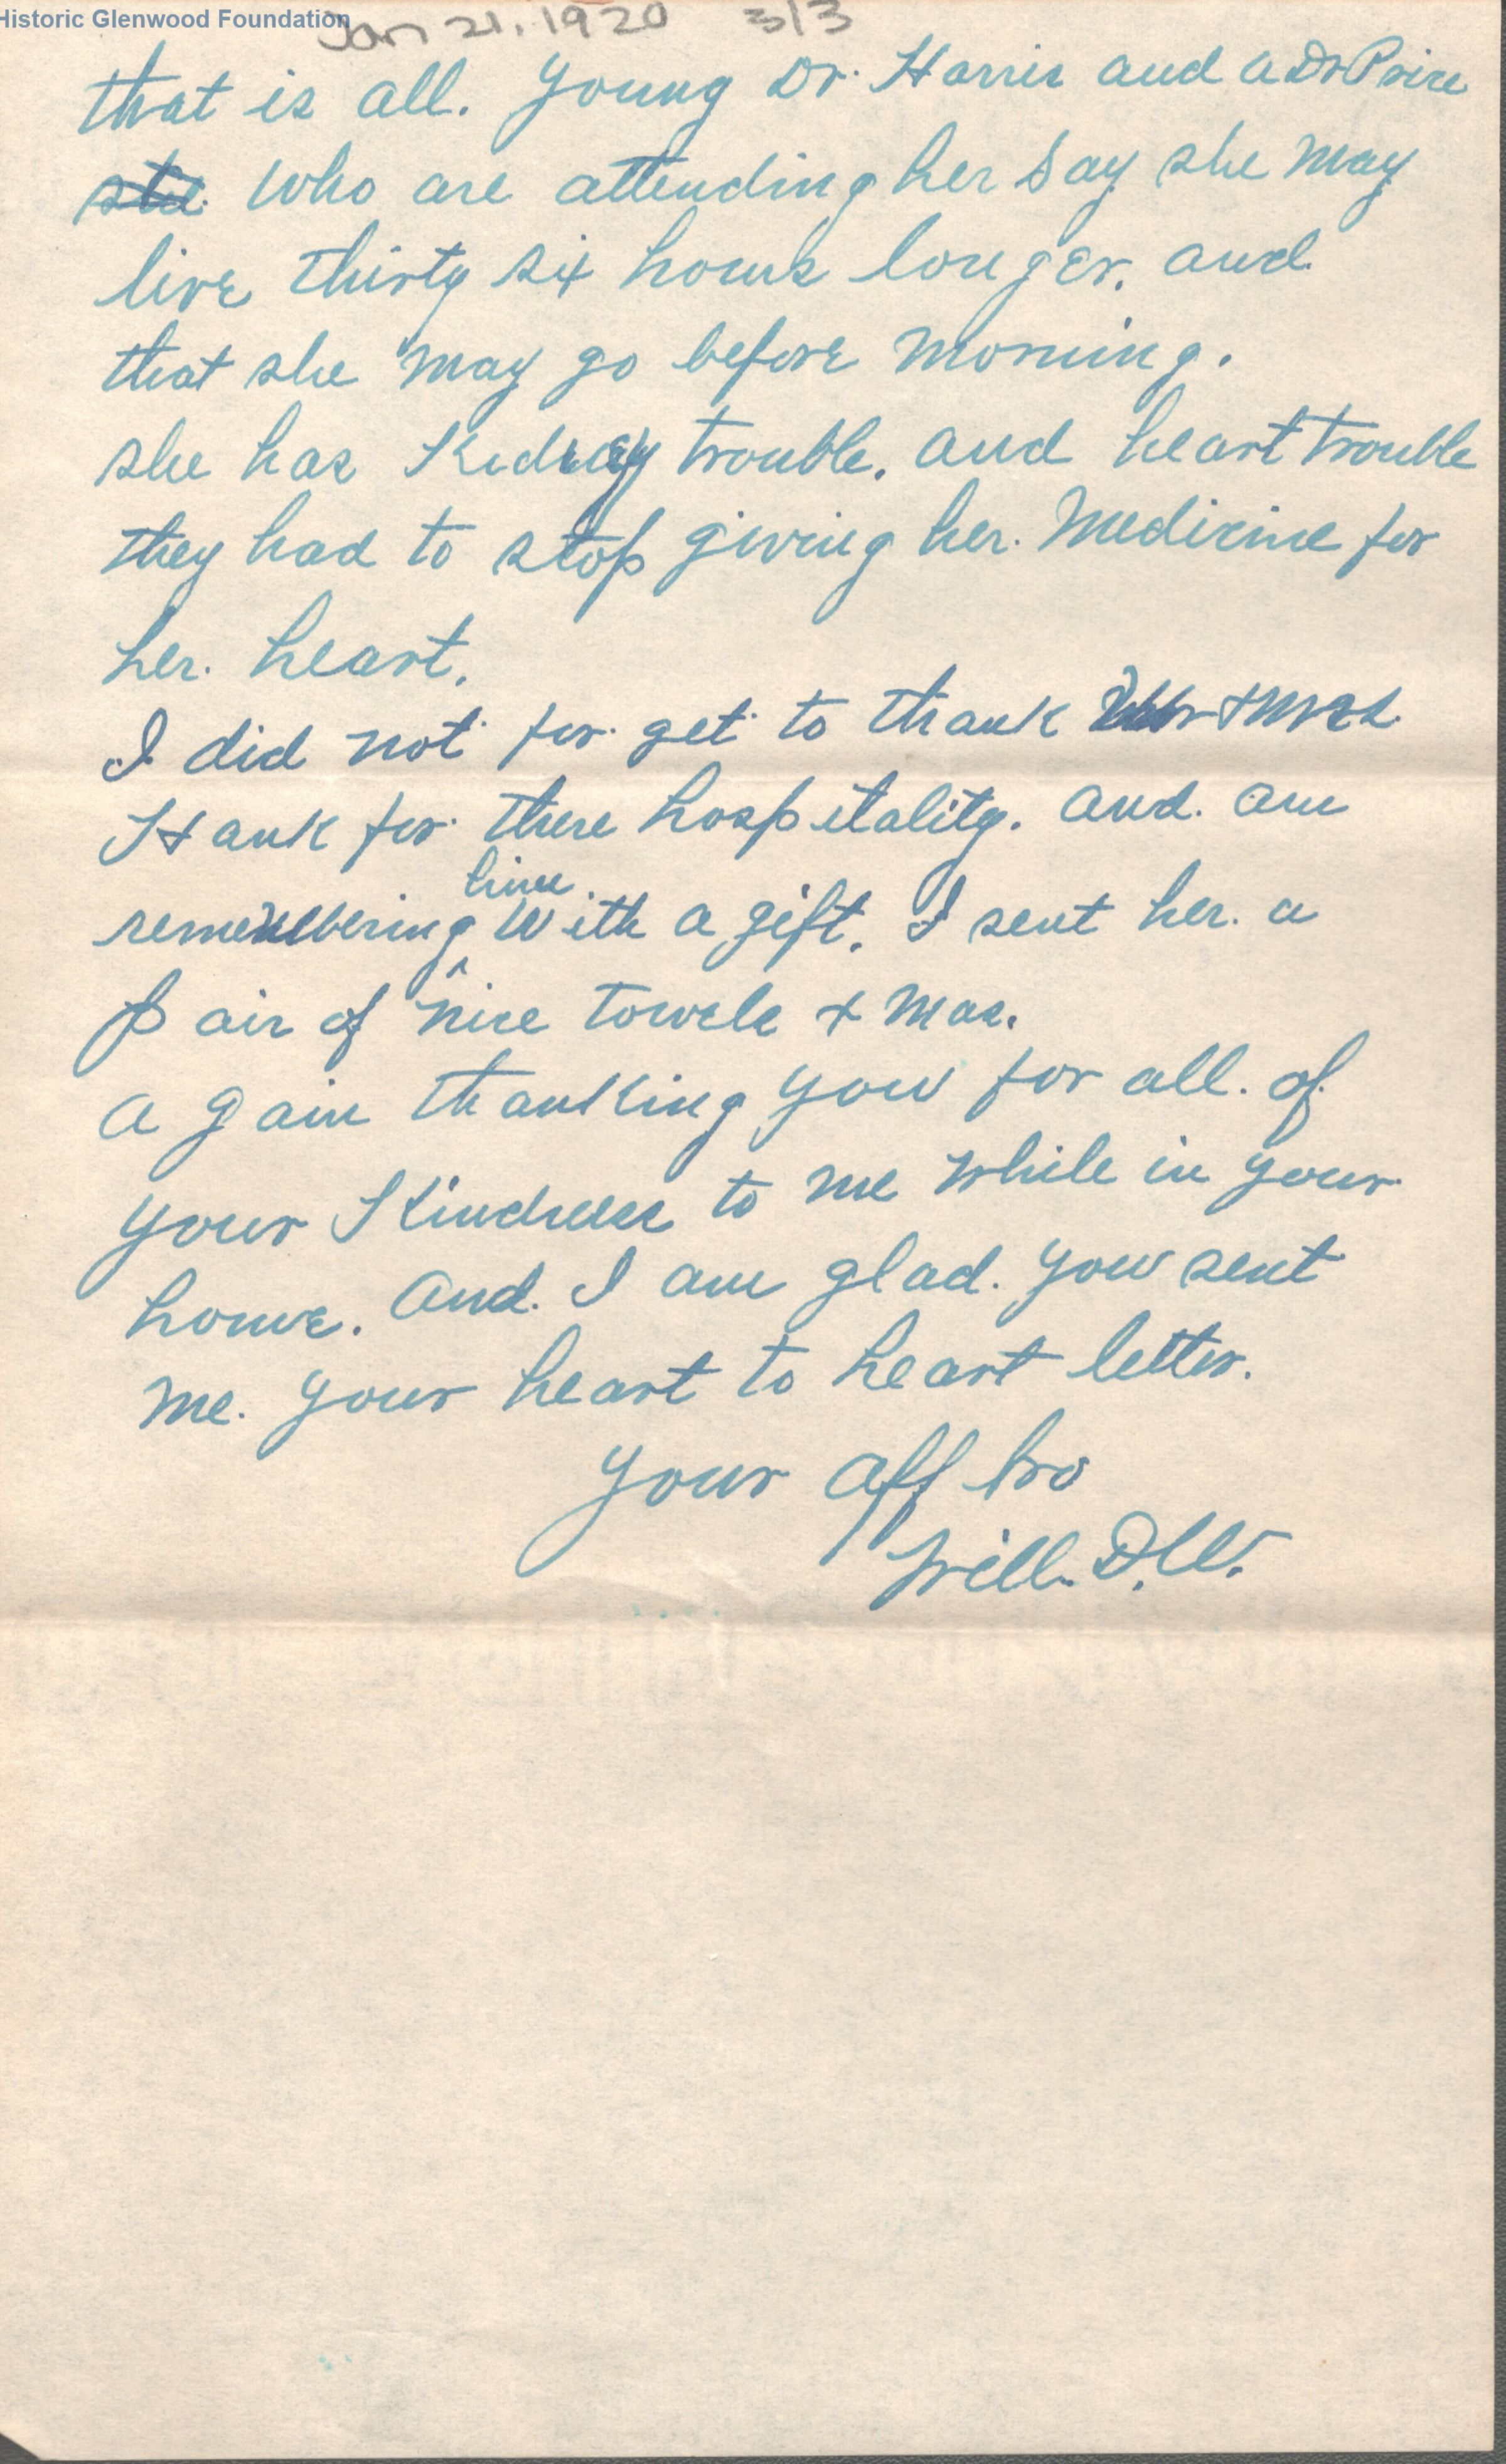 Historic Glenwood Foundation
Jan 21, 1920 3/3
that is all. Young Dr. Harris and a Dr Price
she who are attending her say she may
live thirty six hours longer. and
that she may go before morning.
she has Kidney trouble. and heart trouble
they had to stop giving her. medicine for
her. heart.
I did not for get to thank Mr + Mrs.
Hank for there hospitality. and. am
remembering him with a gift. I sent her. a
pair of nice towels + Mas.
a gain thanking you for all. of.
your Kindness to me while in your
home. and. I am glad. you sent
me. your heart to heart letter.
your aff bro
Will. D.W.